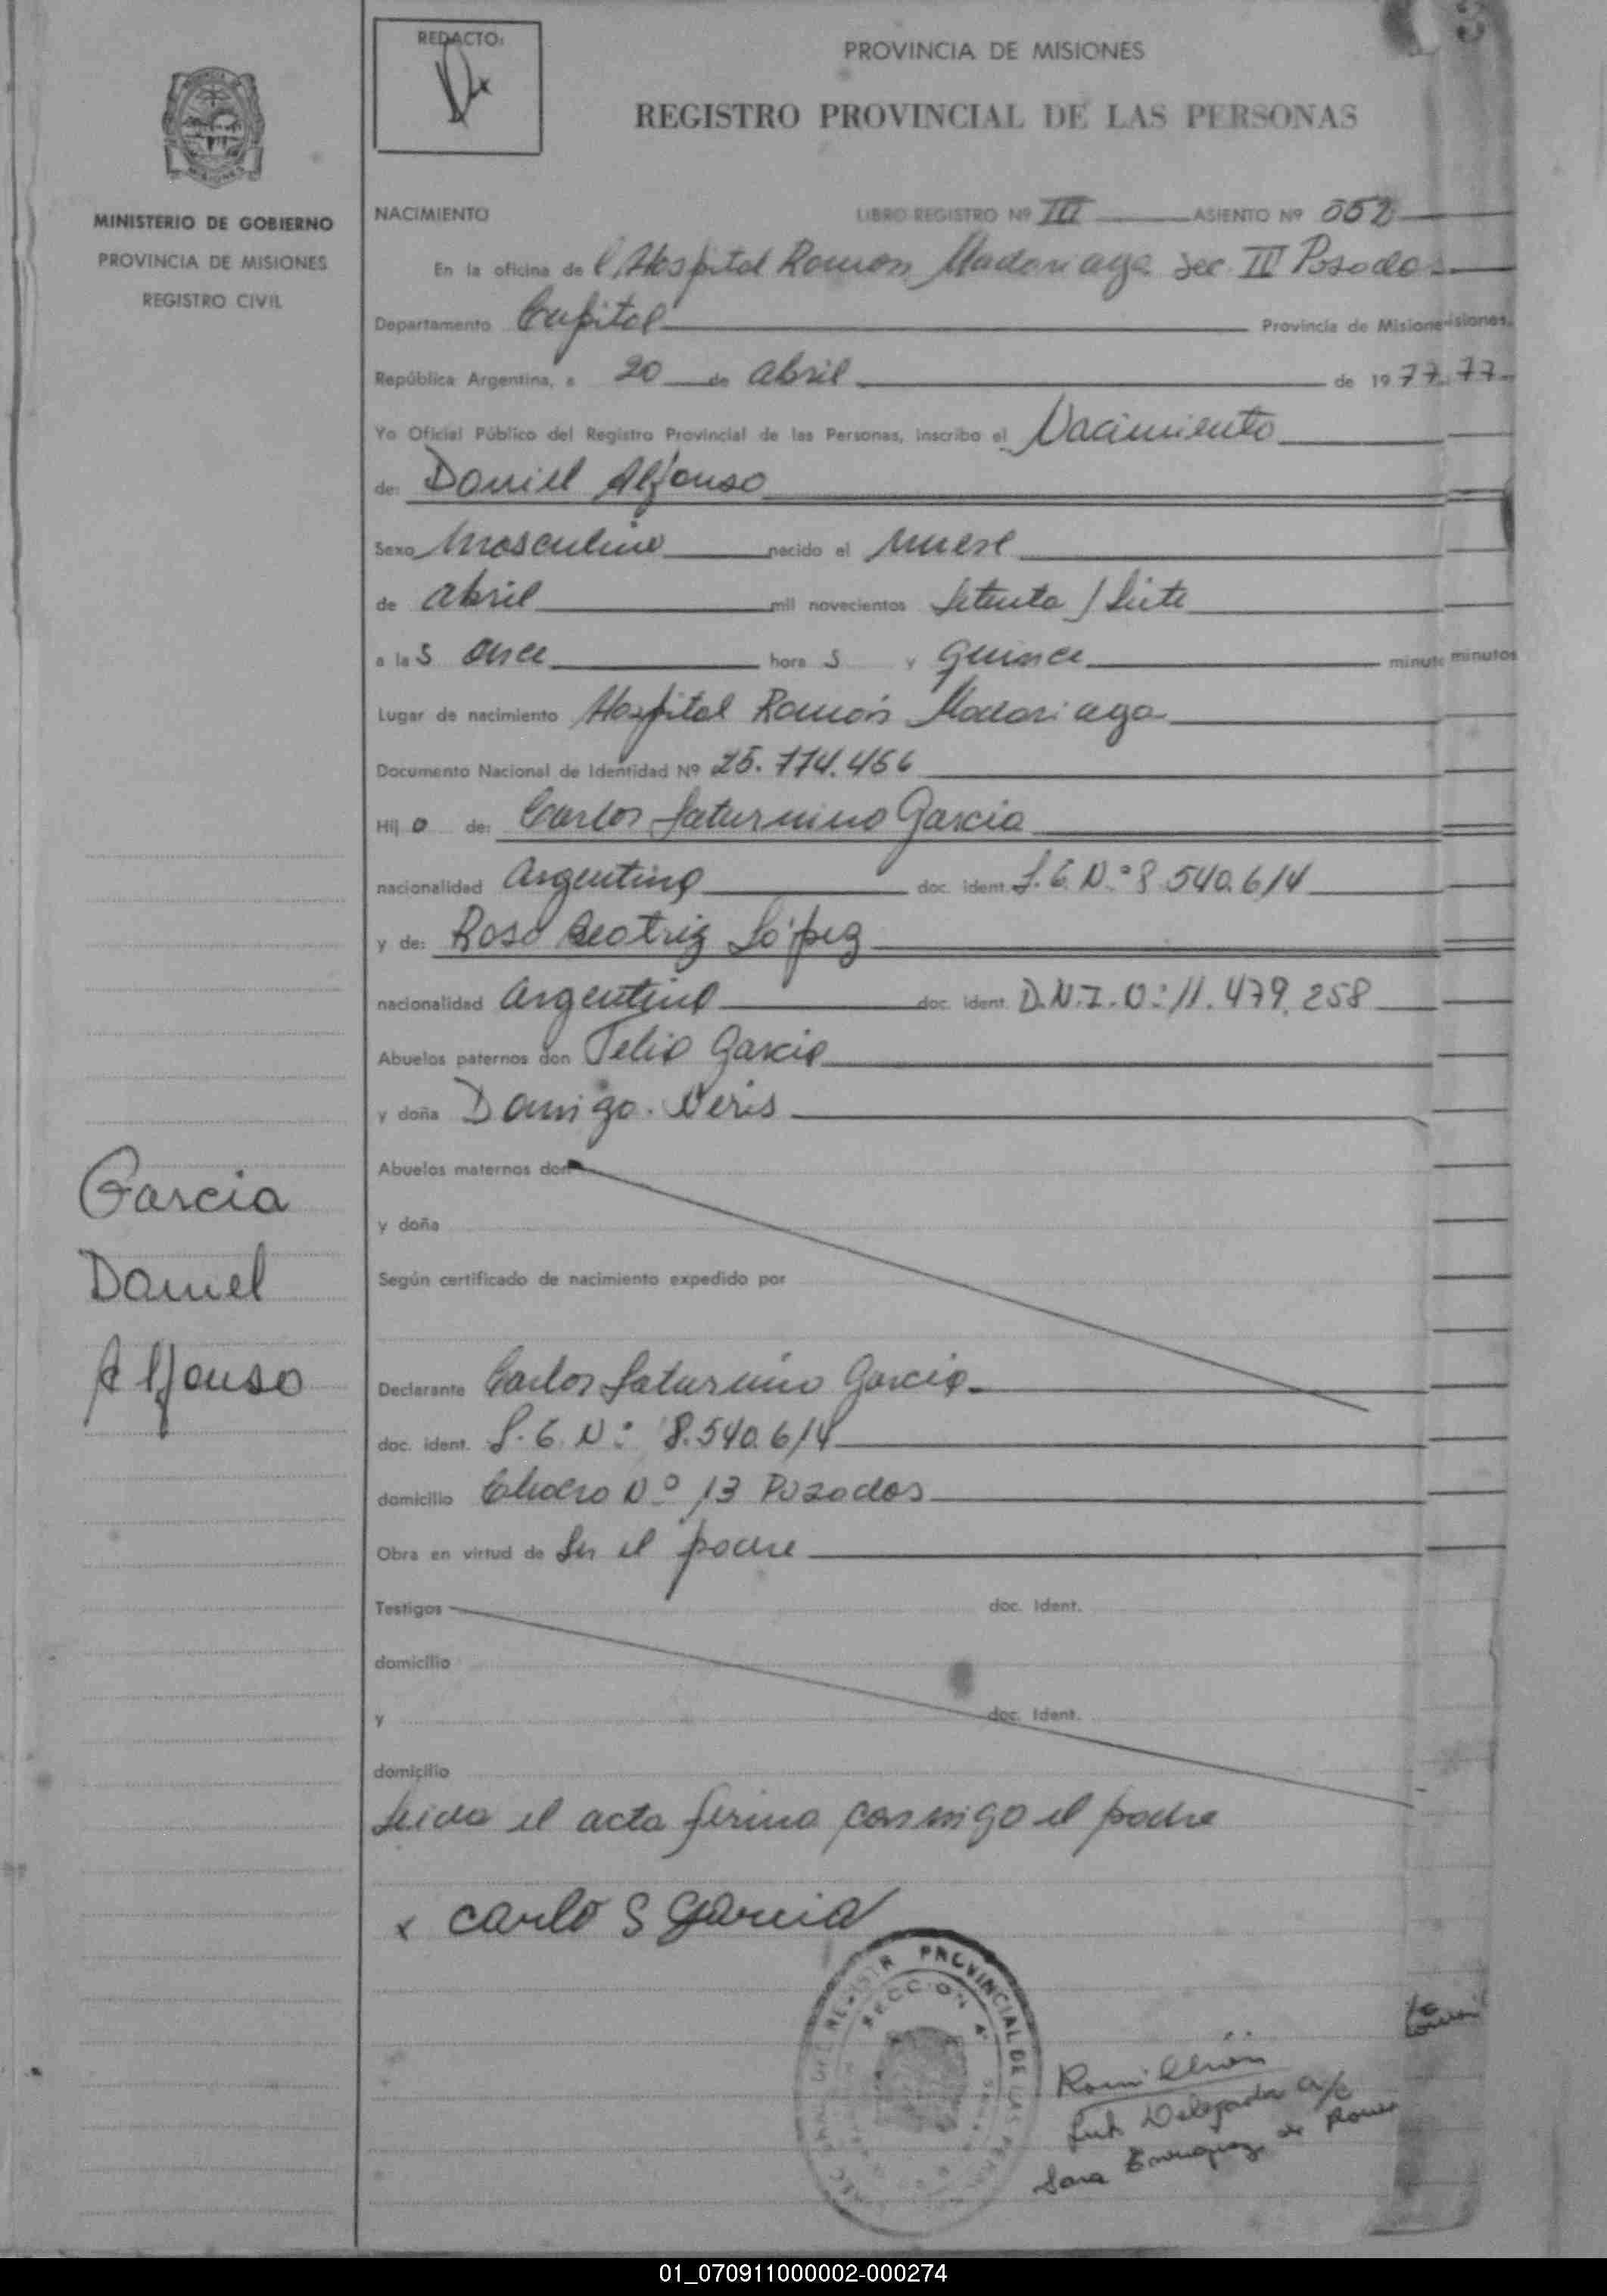 REDACTO:
PROVINCIA DE MISIONES
REGISTRO PROVINCIAL DE LAS PERSONAS
MINISTERIO DE GOBIERNO
PROVINCIA DE MISIONES
REGISTRO CIVIL
NACIMIENTO LIBRO REGISTRO Nº III ASIENTO Nº 552
En la oficina del Hospital Ramón Madariaga Sec. III Posadas
Departamento Capital Provincia de Misiones
República Argentina, a 20 de abril de 1977
Yo Oficial Público del Registro Provincial de las Personas, inscribo el Nacimiento
de: Daniel Alfonso
Sexo Masculino nacido el nueve
de abril mil novecientos Setenta y Siete
a las once horas y quince minutos
Lugar de nacimiento Hospital Ramón Madariaga
Documento Nacional de Identidad Nº 25.774.456
Hijo de: Carlos Saturnino García
nacionalidad Argentino doc. ident. L.E.Nº 8.540.614
y de: Rosa Beatriz López
nacionalidad argentina doc. ident. D.N.I. 11.479.258
Abuelos paternos don Garcia
y doña Neris
Abuelos maternos don
y doña
Según certificado de nacimiento expedido por
Garcia
Daniel
Alfonso
Declarante Carlos Saturnino García
doc. ident. L.E.Nº 8.540.614
domicilio Nº 13 Posadas
Obra en virtud de Ser el padre
Testigos doc. Ident.
domicilio
y doc. Ident.
domicilio
Leida el acta firma conmigo el padre
x Carlo S Garcia
REGISTR PROVINCIAL DE LAS
SECCION 4ª
Delegada a/c
Sara
01_070911000002-000274